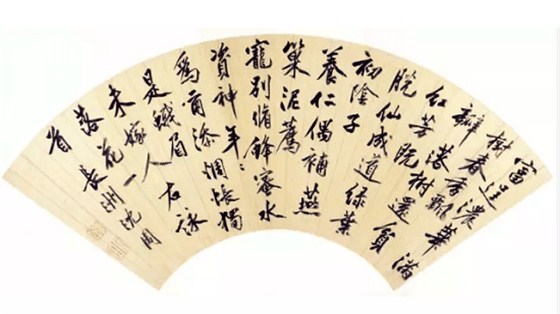 富逞濃華滿
樹春香飄
瓣落樹還貧
紅芳既
脫仙成道綠葉
初陰子
養仁偶補燕
巢泥薦
寵別脩蜂蜜水
資神年〻
為爾添惆悵獨
是蛾眉
未嫁人右詠
落花一
首長洲沈周